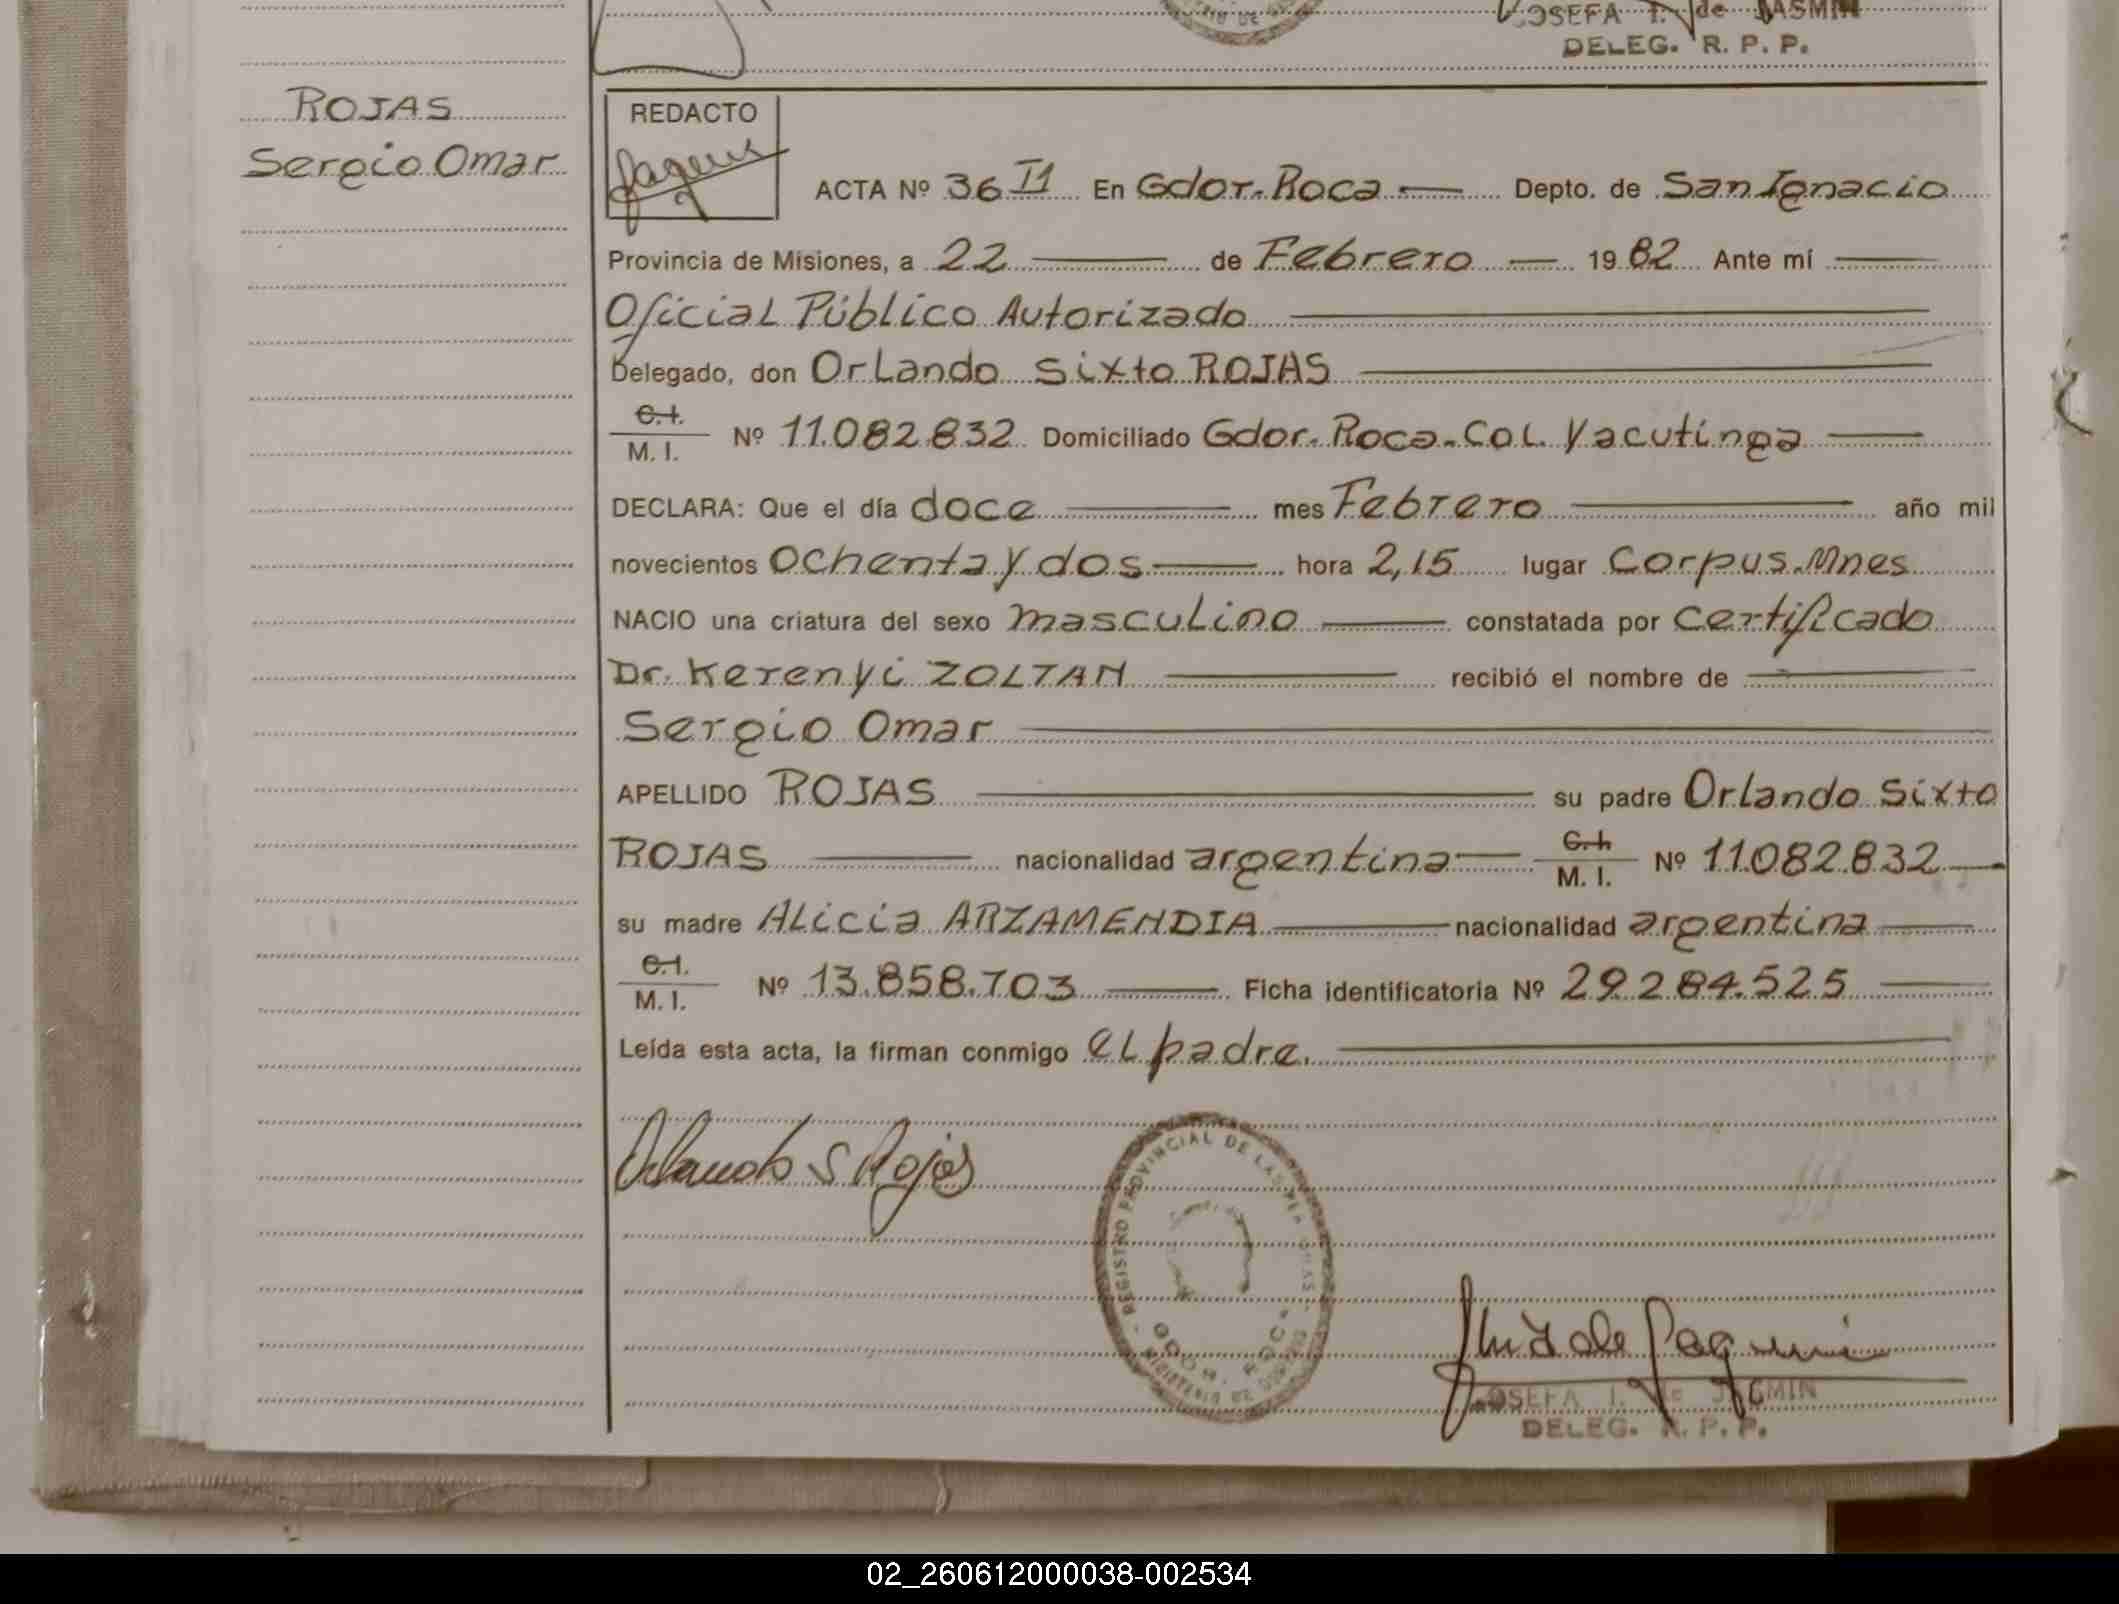 OSEFA I. de JASMIN
DELEG. R. P. P.
ROJAS
Sergio Omar
REDACTO
ACTA Nº 36 II En Gdor. Roca Depto. de San Ignacio
Provincia de Misiones, a 22 de Febrero 1982 Ante mí
Oficial Público Autorizado
Delegado, don Orlando Sixto ROJAS
C.I.
M. I. Nº 11.082.832 Domiciliado Gdor. Roca-Col. Yacutinga
DECLARA: Que el día doce mes Febrero año mil
novecientos ochenta y dos hora 2,15 lugar Corpus.Mnes
NACIO una criatura del sexo masculino constatada por certificado
Dr. Kerenyi ZOLTAN recibió el nombre de
Sergio Omar
APELLIDO ROJAS su padre Orlando Sixto
ROJAS nacionalidad argentina C.I. M. I. Nº 11.082.832
su madre Alicia ARZAMENDIA nacionalidad argentina
C.I.
M. I. Nº 13.858.703 Ficha identificatoria Nº 29.284.525
Leída esta acta, la firman conmigo el padre.
Orlando S Rojas
REGISTRO PROVINCIAL DE LAS PERSONAS
GDOR. ROCA
OSEFA I. de JASMIN
DELEG. R. P. P.
02_260612000038-002534